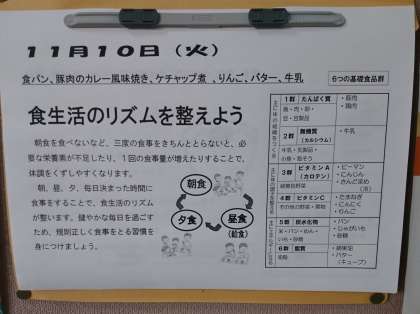 11月10日（火）
食パン、豚肉のカレー風味焼き、ケチャップ煮、りんご、バター、牛乳
6つの基礎食品群
食生活のリズムを整えよう
朝食を食べないなど、三度の食事をきちんととらないと、必
要な栄養素が不足したり、1回の食事量が増えたりすることで、
体調をくずしやすくなります。
朝、昼、夕、毎日決まった時間に
食事をすることで、食生活のリズム
が整います。健やかな毎日を過ごす
ため、規則正しく食事をとる習慣を
身につけましょう。
朝食
夕食
昼食
(給食)
1群 たんぱく質
魚・肉・卵・
豆・豆製品
・豚肉
・鶏肉
2群 無機質
(カルシウム)
牛乳・乳製品・
小魚・海そう
・牛乳
3群 ビタミンA
(カロテン)
緑黄色野菜
・ピーマン
・にんじん
・さんどまめ
(冷)
4群 ビタミンC
その他の野菜・果物
・たまねぎ
・にんにく
・りんご
5群 炭水化物
米・パン・めん・
いも・砂糖
・パン
・じゃがいも
・砂糖
6群 脂質
油脂
・綿実油
・バター
(キューブ)